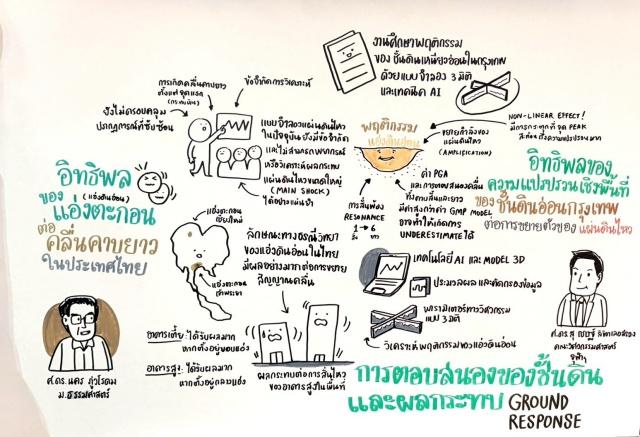 งานศึกษาพฤติกรรม
ของชั้นดินเหนียวอ่อนในกรุงเทพ
ด้วยแบบจำลอง 3 มิติ
และเทคนิค AI
การเกิดคลื่นคาบยาว
ข้อจำกัดการวิเคราะห์
ยังไม่ครอบคลุม
ปรากฏการณ์ที่ซับซ้อน
แบบจำลองแผ่นดินไหว
ในปัจจุบัน ยังมีข้อจำกัด
และไม่สามารถพยากรณ์
หรือวิเคราะห์ผลกระทบ
แผ่นดินไหวขนาดใหญ่
(MAIN SHOCK)
ได้อย่างแม่นยำ
พฤติกรรม
แอ่งดินอ่อน
NON-LINEAR EFFECT!
ขยายกำลังของ
แผ่นดินไหว
(AMPLIFICATION)
การสั่นพ้อง
RESONANCE
1 → 6
ค่า PGA
และการตอบสนองคลื่น
ทั้งคาบสั้นและยาว
มีค่าสูงกว่าค่า GMP MODEL
อาจทำให้เกิดการ
UNDERESTIMATE ได้
อิทธิพล
ของ (แอ่งดินอ่อน)
แอ่งตะกอน
ต่อ
คลื่นคาบยาว
ในประเทศไทย
อิทธิพลของ
ความแปรปรวนเชิงพื้นที่
ของชั้นดินอ่อนกรุงเทพ
ต่อการขยายตัวของแผ่นดินไหว
แอ่งตะกอน
เชียงใหม่
แอ่งตะกอน
เจ้าพระยา
ลักษณะทางธรณีวิทยา
ของแอ่งดินอ่อนในไทย
มีผลอย่างมากต่อการขยาย
สัญญาณคลื่น
เทคโนโลยี AI และ MODEL 3D
ประมวลผล และคัดกรองข้อมูล
พารามิเตอร์ทางวิศวกรรม
แบบ 3 มิติ
วิเคราะห์พฤติกรรมของแอ่งดินอ่อน
อาคารเตี้ย: ได้รับผลมาก
หากตั้งอยู่ขอบแอ่ง
อาคารสูง: ได้รับผลมาก
หากตั้งอยู่กลางแอ่ง
ผลกระทบต่อการสั่นไหว
ของอาคารสูงในพื้นที่
ศ.ดร.นคร ภู่วโรดม
ม.ธรรมศาสตร์
คณะวิศวกรรมศาสตร์
จุฬาฯ
การตอบสนองของชั้นดิน
และผลกระทบ GROUND
RESPONSE